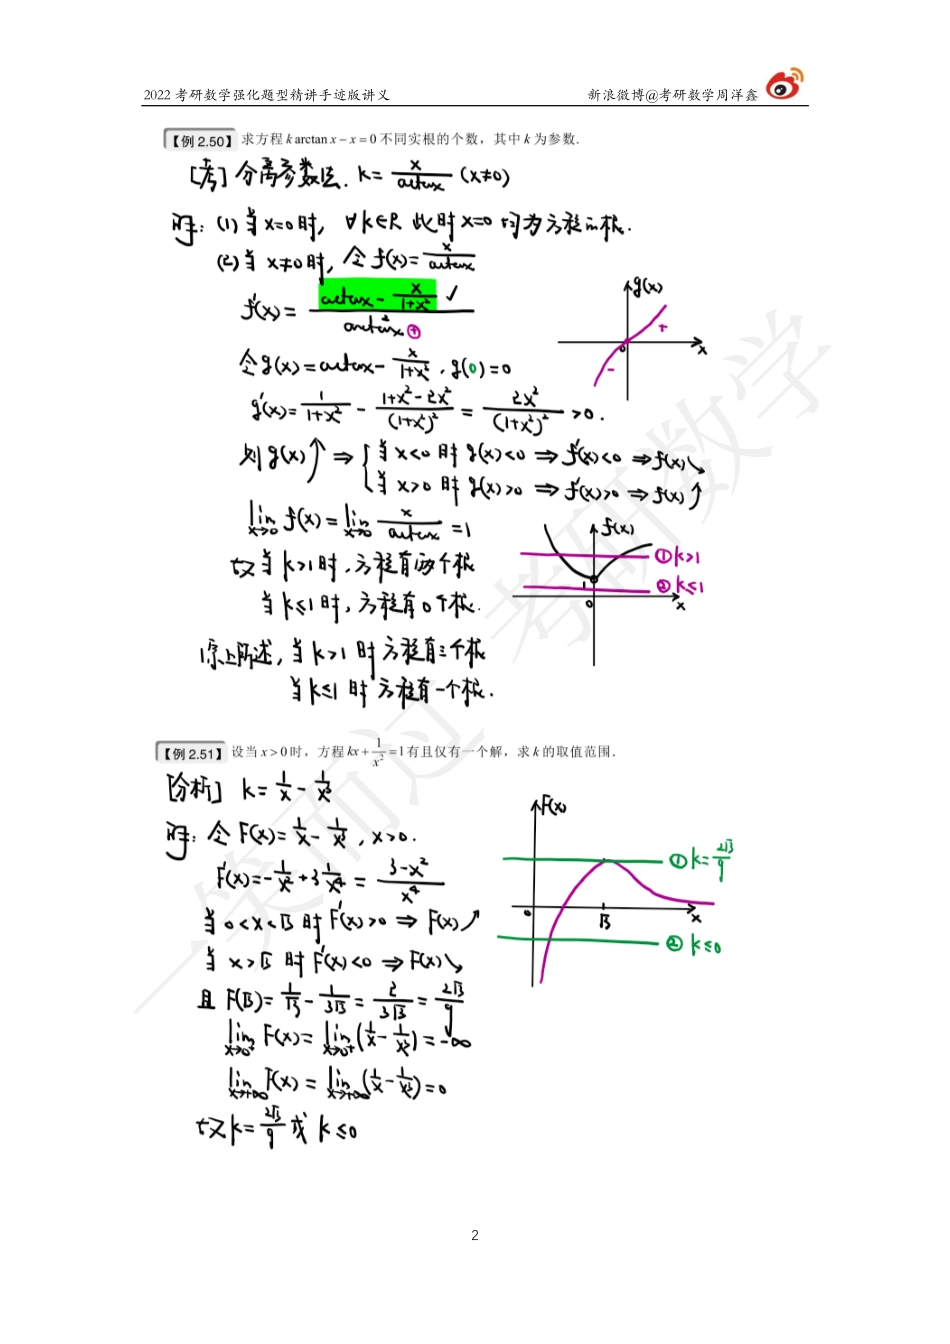 2022 考研数学强化题型精讲手迹版讲义 新浪微博@考研数学周洋鑫
【例 2.50】 求方程 k arctan x − x = 0 不同实根的个数，其中 k 为参数.
[考] 分离参数法. k = x/arctanx (x≠0)
解: (1) 当 x=0 时, ∀k∈R 此时 x=0 均为方程的根.
(2) 当 x≠0 时, 令 f(x) = x/arctanx
f'(x) = (arctanx − x/(1+x²))/arctan²x ✓ ⊕
令 g(x) = arctanx − x/(1+x²), g(0)=0
g'(x) = 1/(1+x²) − (1+x²−2x²)/(1+x²)² = 2x²/(1+x²)² >0.
g(x)
x
0
+
−
则 g(x)↑ ⇒ { 当 x<0 时 g(x)<0 ⇒ f'(x)<0 ⇒ f(x)↘
当 x>0 时 g(x)>0 ⇒ f'(x)>0 ⇒ f(x)↑
lim x→0 f(x) = lim x→0 x/arctanx = 1
故 当 k>1 时, 方程有两个根
当 k≤1 时, 方程有 0 个根.
f(x)
① k>1
② k≤1
1
0
x
综上所述, 当 k>1 时 方程有三个根
当 k≤1 时 方程有一个根.
【例 2.51】 设当 x > 0 时，方程 kx + 1/x² = 1 有且仅有一个解，求 k 的取值范围.
[分析] k = 1/x − 1/x³
解: 令 F(x) = 1/x − 1/x³, x>0.
F'(x) = −1/x² + 3 1/x⁴ = (3−x²)/x⁴
当 0<x<√3 时 F'(x)>0 ⇒ F(x)↗
当 x>√3 时 F'(x)<0 ⇒ F(x)↘
且 F(√3) = 1/√3 − 1/3√3 = 2/3√3 = 2√3/9
lim x→0⁺ F(x) = lim x→0⁺ (1/x − 1/x³) = −∞
lim x→+∞ F(x) = lim x→+∞ (1/x − 1/x³) = 0
故 k = 2√3/9 或 k≤0
F(x)
① k = 2√3/9
0
√3
x
② k≤0
一笑而过 考研数学
2